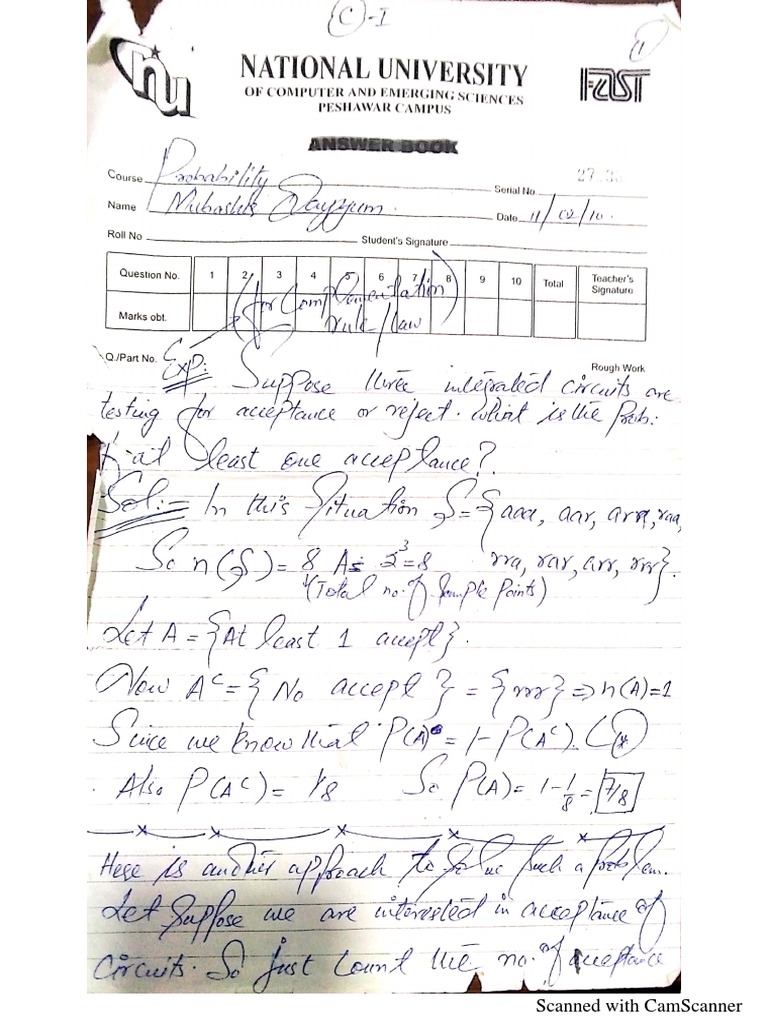 C-I
1
nu
NATIONAL UNIVERSITY
OF COMPUTER AND EMERGING SCIENCES
PESHAWAR CAMPUS
FAST
ANSWER BOOK
Course Probability Serial No.
Name Mubashir Qayyum. Date 11/02/10.
Roll No Student's Signature
Question No. 1 2 3 4 5 6 7 8 9 10 Total Teacher's Signature
Marks obt.
(for Complementation
rule/law)
Q./Part No. Rough Work
Exp: Suppose three integrated circuits are
testing for acceptance or reject. What is the Prob:
of at least one acceptance?
Sol:- In this Situation S={aaa, aar, ara, raa,
So n(S)= 8 As 2³=8 rra, rar, arr, rrr}.
(Total no. of Sample Points)
Let A = {At least 1 accept}.
Now Aᶜ= { No accept } = {rrr} => n(A)=1
Since we know that P(A) = 1- P(Aᶜ). (*)
Also P(Aᶜ)= 1/8 So P(A)= 1-1/8=7/8
Here is another approach to solve such a problem.
Let Suppose we are interested in acceptance of
Circuits. So just Count the no. of acceptance
Scanned with CamScanner